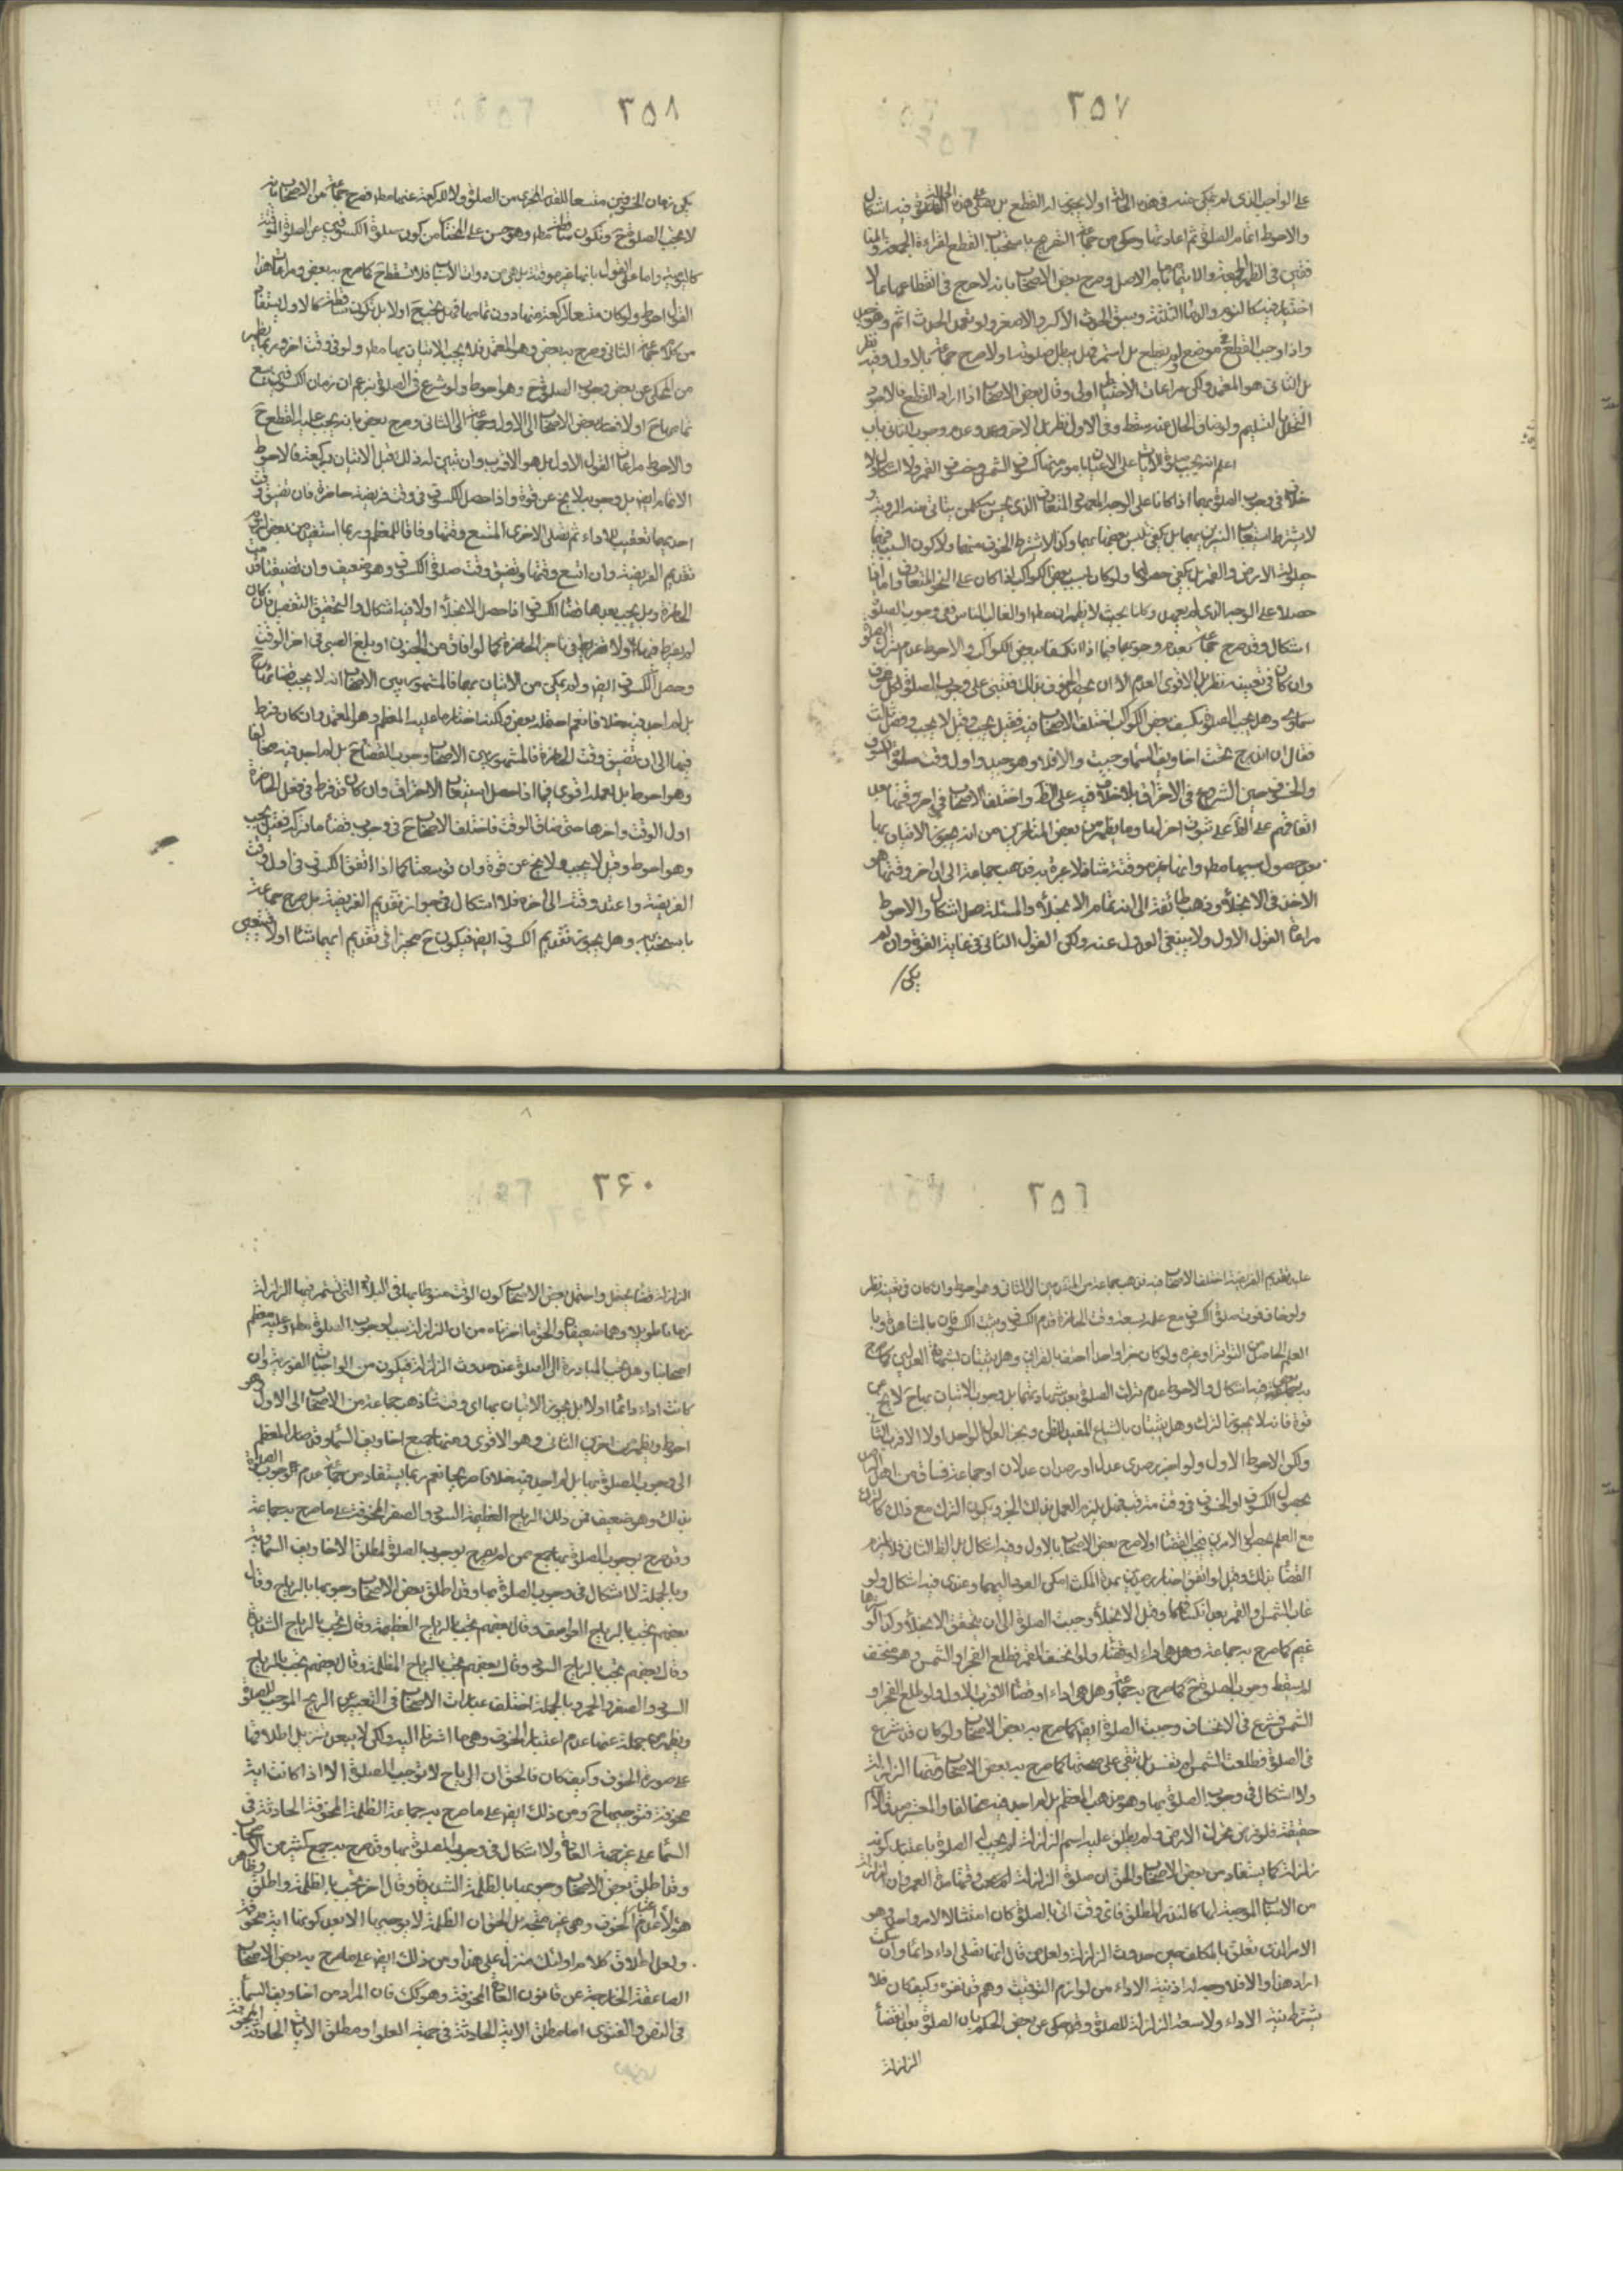 ٢٥٧
على الواجب الذى لم يتمكن منه فى هذه الحالة اولا يجوز له القطع بل يصلى هذه الصلوة فيه اشكال
والاحوط اتمام الصلوة ثم اعادتها وحكى عن جماعة التصريح باستحباب القطع لقراءة الجمعة
اختيار فيه كالنوم والدماء الثلثة وسبق الحدث الاكبر والاصغر ولو تعمد الحدث اثم وهو
واذا وجب القطع فى موضع ولم يقطع بل استمر فهل يبطل صلوته اولا صرح جماعة بالاول وفيه نظر
بل الثانى هو المعتمد ولكن مراعات الاحتياط اولى وقال بعض الاصحاب اذا اراد القطع فالاحوط
التحلل بالتسليم ولو ضاق الحال عنه سقط وفى الاول نظر بل الاخر وعدم وجوب الثانى باب
اعلم انه يجب صلوة الايات على الاعيان بامور منها كسوف الشمس وخسوف القمر ولا اشكال ولا
خلاف فى وجوب الصلوة بهما اذا كانا على الوجه المعهود المتعارف الذى يحس به كل من يتاتى منه الروية و
حيلولة الارض والقمر بل يكفى حصولها ولو كان بسبب بعض الكواكب اذا كان على النحو المتعارف واما اذا
اشكال وقد صرح جماعة بعدم وجوبها فيما اذا انكسفا ببعض الكواكب والاحوط عدم ترك الصلوة
وان كان فى تعيينه نظر بل الاقوى العدم الا ان يحصل الخوف بذلك فتبنى على وجوب الصلوة لكل مخوف
سماوى وهل يجب الصلوة بكسف بعض الكواكب اختلف الاصحاب فيه فقيل يجب وقيل لا يجب وفصل ثالث
فقال ان اندرج تحت اخاويف السماء وجبت والا فلا وهو جيد واول وقت صلوة الكسوف
والخسوف حين الشروع فى الاحتراق بلا خلاف فيه على الظ واختلف الاصحاب فى اخر وقتها بعد
اتفاقهم على الظ على ثبوت اخر لها وما يظهر من بعض المتاخرين من انه يجوز الاتيان بها
بعد حصول سببها مطم وانها غير موقتة شاذ فلا عبرة به فذهب جماعة الى ان اخر وقتها هو
الاخذ فى الانجلاء وذهب طائفة الى انه تمام الانجلاء والمسئلة محل اشكال والاحوط
مراعاة القول الاول ولا ينبغى العدول عنه ولكن القول الثانى فى غاية القوة وان لم
يكن
٢٥٨
يكن زمان الخسوفين متسعا للقدر المجزى من الصلوة ولا لركعة منها مطم فصرح جماعة من الاصحاب بانه
لا يجب الصلوة ح وتكون ساقطة مطم وهو حسن على المختار من كون صلوة الكسوفين من الصلوة الموقتة
كاليومية واما على القول بانها غير موقتة بل هى من ذوات الاسباب فلا تسقط ح كما صرح به بعض ومراعات هذا
القول احوط ولو كان متسعا لركعة منها دون تمامها فهل يجب ح اولا بل تكون ساقطة كالاول يستفاد
من كلام جماعة الثانى وصرح به بعض وهو المعتمد فلا يجب الاتيان بها مطم ولو فى وقت اخر وربما يظهر
من المحكى عن بعض وجوب الصلوة ح وهو احوط ولو شرع فى الصلوة بزعم ان زمان الكسوفين يسع
تمامها ح اولا فقط بعض الاصحاب الى الاول وجماعة الى الثانى وصرح بعض بانه يجب عليه القطع ح
والاحوط مراعات القول الاول بل هو الاقرب وان تبين له ذلك قبل الاتيان بركعة فالاحوط
الاتمام ايض بل وجوبه لا يخ عن قوة واذا حصل الكسوف فى وقت فريضة حاضرة فان تضيق وقت
احديهما تعينت للاداء ثم تصلى الاخرى المتسع وقتها وفاقا للمعظم وربما استفيد من بعض لزوم
تقديم الفريضة وان اتسع وقتها وتضيق وقت صلوة الكسوف وهو ضعيف وان تضيقتا قدمت
الحاضرة وهل يجب بعدها قضاء الكسوف اذا حصل الانجلاء اولا فيه اشكال والتحقيق التفصيل فان كان
لم يفرط فيهما اولا تفريط فى تاخير الحاضرة كما لو افاق من الجنون او بلغ الصبى فى اخر الوقت
وحصل الكسوف ايض ولم يمكن من الاتيان بهما فالمشهور بين الاصحاب انه لا يجب قضائها ح
بل لم اجد فيه خلافا نعم احتمله بعض ولكن ما اختاره ما عليه المعظم هو المعتمد وان كان فرط
فيها الى ان تضيق وقت الحاضرة فالمشهور بين الاصحاب وجوب القضاء ح بل لم اجد فيه مخالفا
وهو احوط بل لعله اقوى فيما اذا حصل استيعاب الاحتراق وان كان قد فرط فى فعل الحاضرة
اول الوقت واخرها حتى ضاق الوقت فاختلف الاصحاب ح فى وجوب قضاء ما تركه فقيل يجب
وهو احوط وقيل لا يجب ولا يخ عن قوة وان توسعتا كما اذا اتفق الكسوف فى اول وقت
الفريضة واعتد وقته الى اخره فلا اشكال فى جواز تقديم الفريضة بل صرح جماعة
باستحبابه وهل يجوز تقديم الكسوف ايض فيكون ح مخيرا فى تقديم ايهما شاء اولا فيتعين
٢٥٩
عليه تقديم الفريضة اختلف الاصحاب فيه فذهب جماعة من المتقدمين الى الثانى وهو احوط وان كان فى تعينه نظر
ولو خاف فوت صلوة الكسوف مع علمه بسعة وقت الحاضرة قدم الكسوف ويثبت الكسوفان بالمشاهدة وبا
العلم الحاصل من التواتر او غيره ولو كان خبرا واحدا احتف بالقراين وهل يثبتان بشهادة العدلين كما صرح
به جماعة فيه اشكال والاحوط عدم ترك الصلوة بعد شهادتهما بل وجوب الاتيان بها ح لا يخ عن
قوة فانه لا يجوز الترك وهل يثبتان بالشياع المفيد للظن وبخبر العدل الواحد اولا الاقرب الثانى
ولكن الاحوط الاول ولو اخبر رصدى عدل او رصديان عدلان او جماعة فساق من اهل الرصد
بحصول الكسوف او الخسوف فى وقت مترقب فهل يلزم العمل بذلك الخبر ويكون الترك مع ذلك كالترك
مع العلم بحصول الامرين فيجب القضاء اولا صرح بعض الاصحاب بالاول وفيه اشكال بل الظ الثانى فلا يلزم
القضاء بذلك وقيل لو اتفق اخبار رصديين بمدة المكث امكن العود اليهما وعندى فيه اشكال ولو
غاب الشمس والقمر بعد انكسافهما وقبل الانجلاء وجبت الصلوة الى ان يتحقق الانجلاء وكذا لو سترها
غيم كما صرح به جماعة وهل هى اداء او قضاء ولو انخسف القمر فطلع الفجر او الشمس وهو منخسف
لم يسقط وجوب الصلوة ح كما صرح به جماعة وهل هى اداء او قضاء الاقرب الاول ولو طلع الفجر او
الشمس فشرع فى الانخساف وجبت الصلوة ايض كما صرح به بعض الاصحاب ولو كان قد شرع
فى الصلوة فطلعت الشمس لم تفسد بل تبقى على صحتها كما صرح به بعض الاصحاب ومنها الزلزلة
ولا اشكال فى وجوب الصلوة بها وهو مذهب المعظم بل لم اجد فيه مخالفا والمعتبر صدقها
حقيقة فلو فرض تحرك الارض ولم يطلق عليه اسم الزلزلة لم يجب له الصلوة باعتبار كونه
زلزلة كما يستفاد من بعض الاصحاب والحق ان صلوة الزلزلة لم يعين وقتها مدة العمر وان الزلزلة
من الاسباب الموجبة لها كالنذر المطلق فاى وقت اتى بالصلوة كان امتثالا لامر واحد وهو
الامر الذى تعلق بالمكلف حين حدوث الزلزلة ولعل من قال انها تصلى اداء دائما وان سكنت
اراد هذا والا فلا وجه له اذ نية الاداء من لوازم التوقيت وهم قد نفوه وكيف كان فلا
يشترط نية الاداء ولا سعة الزلزلة للصلوة وقد حكى عن بعض الحكم بان الصلوة بعد انقضاء
الزلزلة
٢٦٠
الزلزلة قضاء محتمل واحتمل بعض الاصحاب كون الوقت منوطا بها فى البلاد التى تستمر فيها الزلزلة
زمانا طويلا وهما ضعيفان والحق ما اخترناه من ان الزلزلة سبب لوجوب الصلوة مطم وعليه معظم
اصحابنا وهل يجب المبادرة الى الصلوة عند حدوث الزلزلة فيكون من الواجبات الفورية وان
كانت اداء دائما اولا بل يجوز الاتيان بها اى وقت شاء ذهب جماعة من الاصحاب الى الاول وهو
احوط ويظهر من اخرين الثانى وهو الاقوى ومنها جميع اخاويف السماء وقد صار المعظم
الى وجوب الصلوة بها بل لم اجد فيه خلافا صريحا نعم ربما يستفاد من جماعة عدم وجوب الصلوة
بذلك وهو ضعيف فمن ذلك الرياح العظيمة السود والصفر المخوفة على ما صرح به جماعة
وقد صرح بوجوب الصلوة بها جمع ممن لم يصرح بوجوب الصلوة لمطلق الاخاويف السماوية
وبالجملة لا اشكال فى وجوب الصلوة بها وقد اطلق بعض الاصحاب وجوبها بالرياح وقال
بعضهم يجب بالرياح العواصف وقال بعضهم يجب بالرياح العظيمة وقال يجب بالرياح الشديدة
وقال بعضهم يجب بالرياح السود وقال بعضهم يجب بالرياح المظلمة وقال بعضهم يجب بالرياح
السود والصفر والحمر وبالجملة اختلف عبارات الاصحاب فى التعبير عن الريح الموجب للصلوة
ويظهر من جملة منها عدم اعتبار الخوف وهى ما اشرنا اليه ولكن لا يبعد تنزيل اطلاقها
على صورة الخوف وكيف كان فالحق ان الرياح لا توجب الصلوة الا اذا كانت اية
مخوفة فتوجبها ح ومن ذلك ايض على ما صرح به جماعة الظلمة المخوفة الحادثة فى
السماء على غير جهة العادة ولا اشكال فى وجوب الصلوة بها وقد صرح به جمع كثير من الاصحاب
وقد اطلق بعض الاصحاب وجوبها بالظلمة الشديدة وقال اخر يجب بالظلمة واطلق وظاهر
هؤلاء عدم اعتبار الخوف وهى غير متجه بل الحق ان الظلمة لا يوجبها الا بعد كونها اية مخوفة
ولعل اطلاق كلام اولئك منزل على هذا ومن ذلك ايض على ما صرح به بعض الاصحاب
الصاعقة الخارجة عن قانون العادة المخوفة وهو كك فان المراد من اخاويف السماء
فى النص والفتوى اما مطلق الاية الحادثة فى جهة العلو او مطلق الايات الحادثة المخوفة